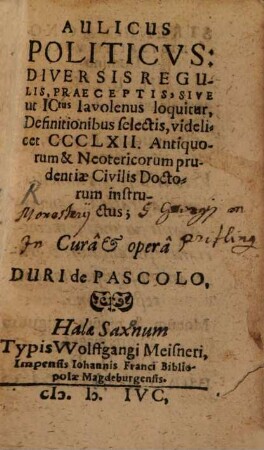 AULICUS
POLITICVS:
DIVERSIS REGU-
LIS, PRAECEPTIS, SIVE
ut ICtus Iavolenus loquitur,
Definitionibus selectis, videli-
cet CCCLXII. Antiquo-
rum & Neotericorum pru-
dentiæ Civilis Docto-
rum instru-
Monasterij ctus; S. Georgij on
In Curâ & operâ Prifling
DURI de PASCOLO,
Halæ Saxonum
Typis Wolffgangi Meisneri,
Impensis Iohannis Franci Biblio-
polæ Magdeburgensis.
cIɔ. Iɔ. IVC,